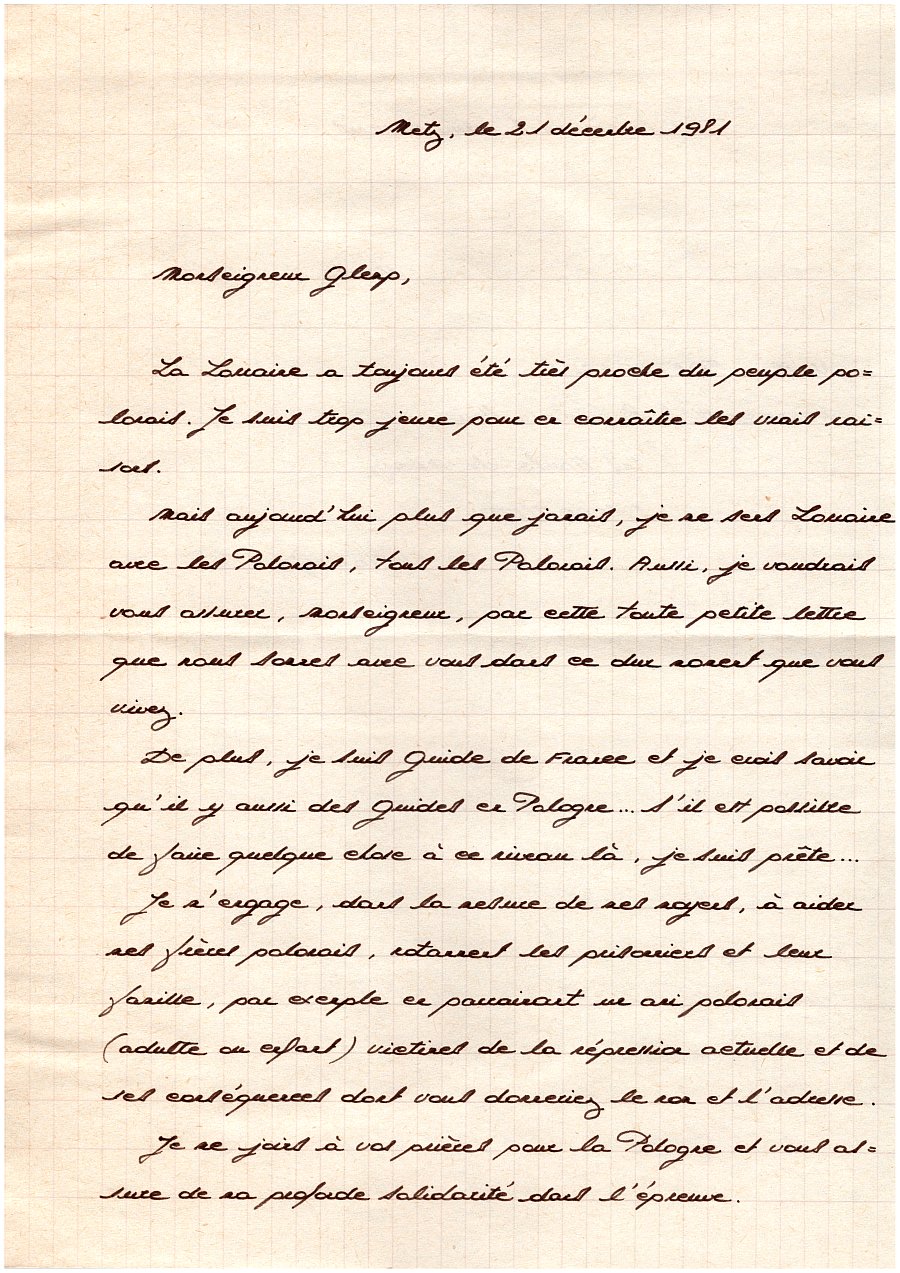 Metz, le 21 décembre 1981
Monseigneur Glemp,
La Lorraine a toujours été très proche du peuple po=
lonais. Je suis trop jeune pour en connaître les vrais rai=
sons.
Mais aujourd'hui plus que jamais, je me sens Lorraine
avec les Polonais, tous les Polonais. Aussi, je voudrais
vous assurer, Monseigneur, par cette toute petite lettre
que nous sommes avec vous dans ce dur moment que vous
vivez.
De plus, je suis Guide de France et je crois savoir
qu'il y aussi des Guides en Pologne... s'il est possible
de faire quelque chose à ce niveau là, je suis prête...
Je m'engage, dans la mesure de mes moyens, à aider
mes frères polonais, notamment les prisonniers et leur
famille, par exemple en parrainant un ami polonais
(adulte ou enfant) victimes de la répression actuelle et de
ses conséquences dont vous donneriez le nom et l'adresse.
Je me joins à vos prières pour la Pologne et vous as=
sure de ma profonde solidarité dans l'épreuve.